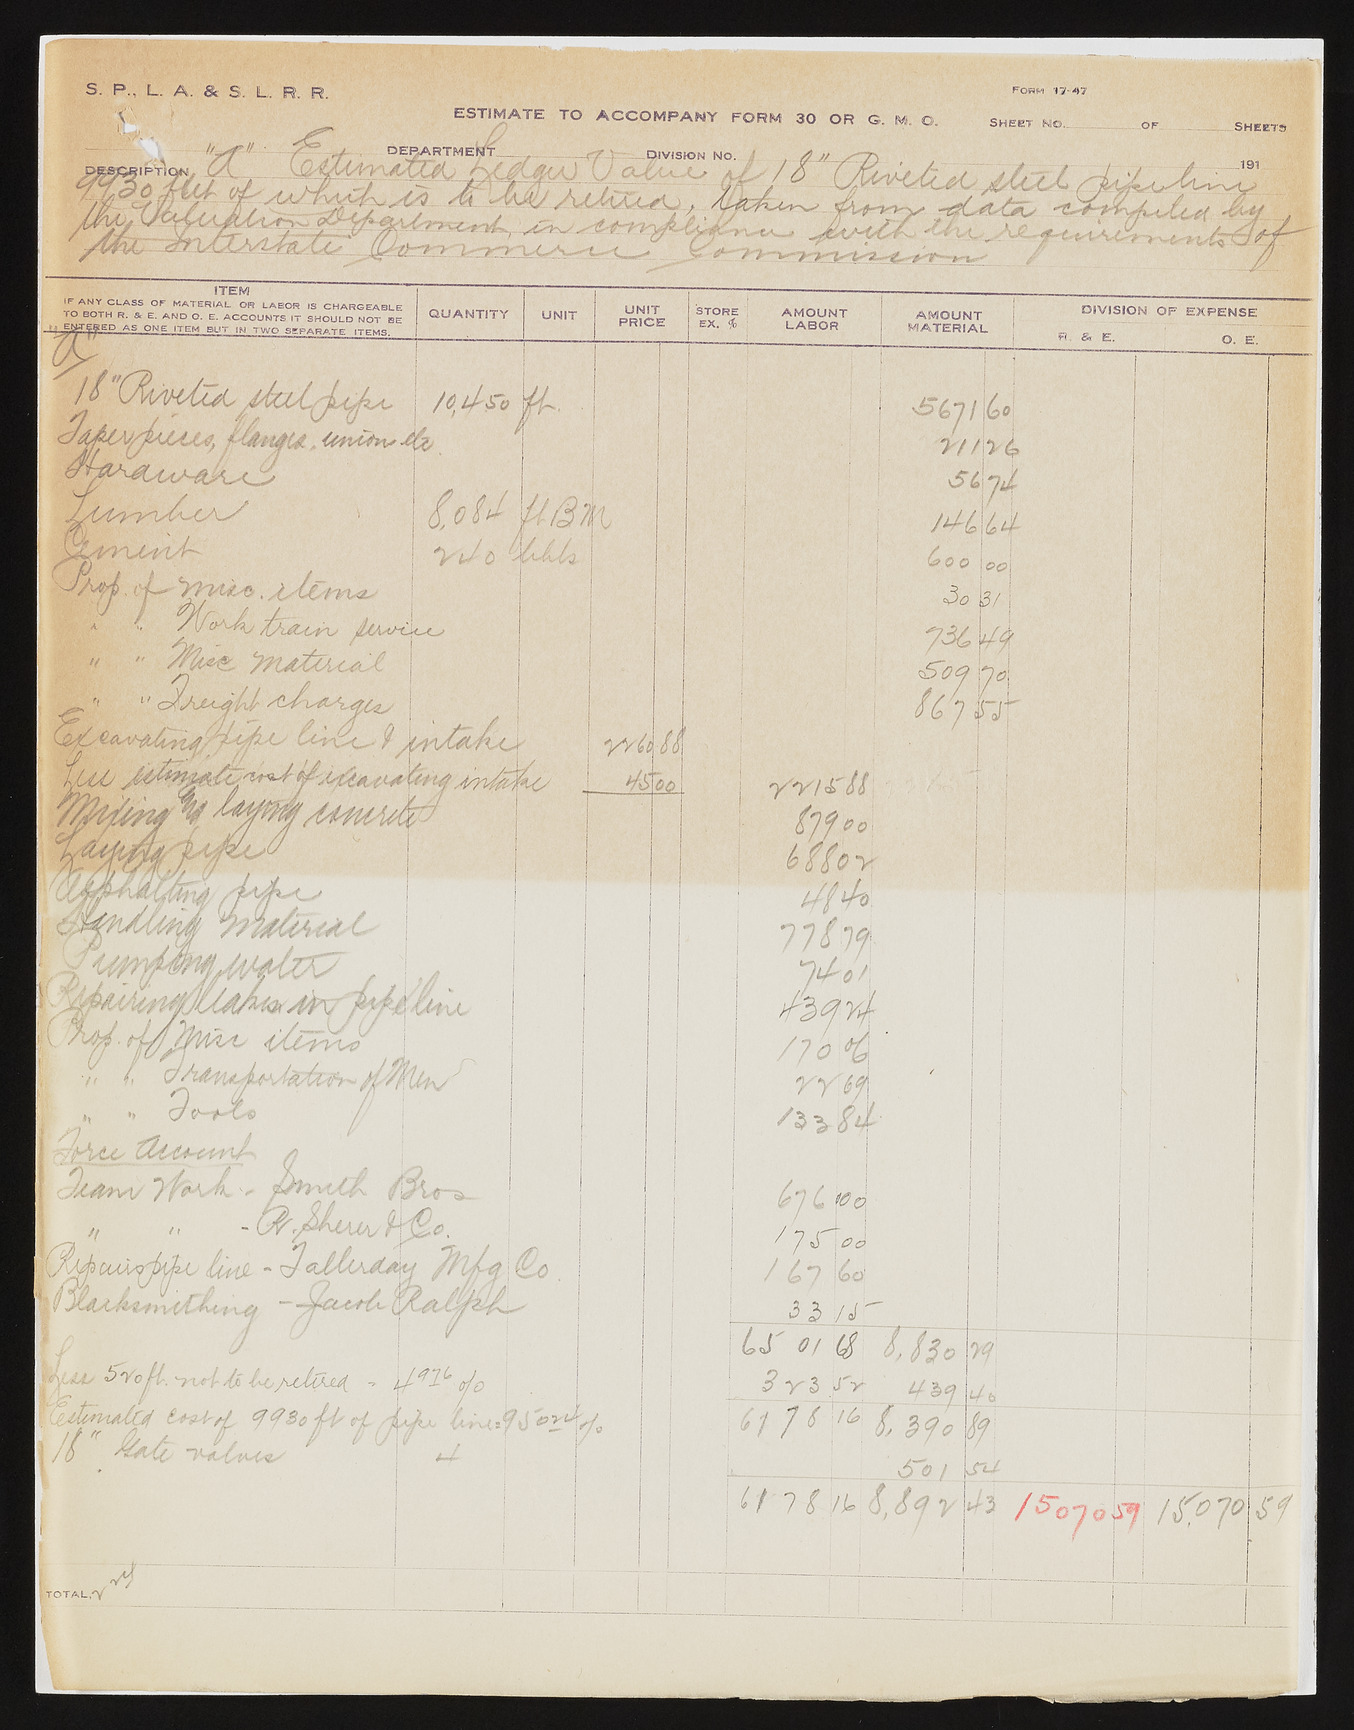 S. P., L. A. & S. L. R. R.
FORM 17-47
ESTIMATE TO ACCOMPANY FORM 30 OR G. M. O.
SHEET NO. OF SHEETS
DEPARTMENT DIVISION NO. 191
DESCRIPTION "A" Estimated Ledger Value of 18" Riveted steel pipe line
9930 feet of which is to be retired, taken from data compiled by
the Valuation Department, in compliance with the requirements of
the Interstate Commerce Commission
ITEM
IF ANY CLASS OF MATERIAL OR LABOR IS CHARGEABLE
TO BOTH R. & E. AND O. E. ACCOUNTS IT SHOULD NOT BE
ENTERED AS ONE ITEM BUT IN TWO SEPARATE ITEMS.
QUANTITY UNIT UNIT PRICE STORE EX. % AMOUNT LABOR AMOUNT MATERIAL DIVISION OF EXPENSE
R. & E. O. E.
"A"
18" Riveted steel pipe 10,450 ft. 5671 60
Taper pieces, flanges, union etc. 211 26
Hardware 56 74
Lumber 8,084 ft BM 146 64
Cement 240 bbls 600 00
Prop. of misc. items 30 31
" " Work train service 736 49
" " Misc material 509 70
" " Freight charges 867 55
Excavating pipe line & intake 2260 88
Less estimate cost of excavating intake 45 00 2215 88
Mixing and laying concrete 879 00
Laying pipe 688 02
Asphalting pipe 48 40
Handling material 778 79
Pumping water 74 01
Repairing leaks in pipe line 439 24
Prop. of Misc items 170 06
" " Transportation of Men 22 69
" " Tools 133 84
Force Account
Team Work - Smith Bros 676 00
" " - R. Sherer & Co. 175 00
Repairs pipe line - Tallerday Mfg Co. 167 60
Blacksmithing - Jacob Ralph 33 15
65 01 68 8,830 29
Less 520 ft. not to be retired - 4976 % 323 52 439 40
Estimated cost of 9930 ft of pipe line = 95024 % 6178 16 8,390 89
18" Gate valves 4 501 54
6178 16 8,892 43 15070 59 15,070 59
TOTAL,